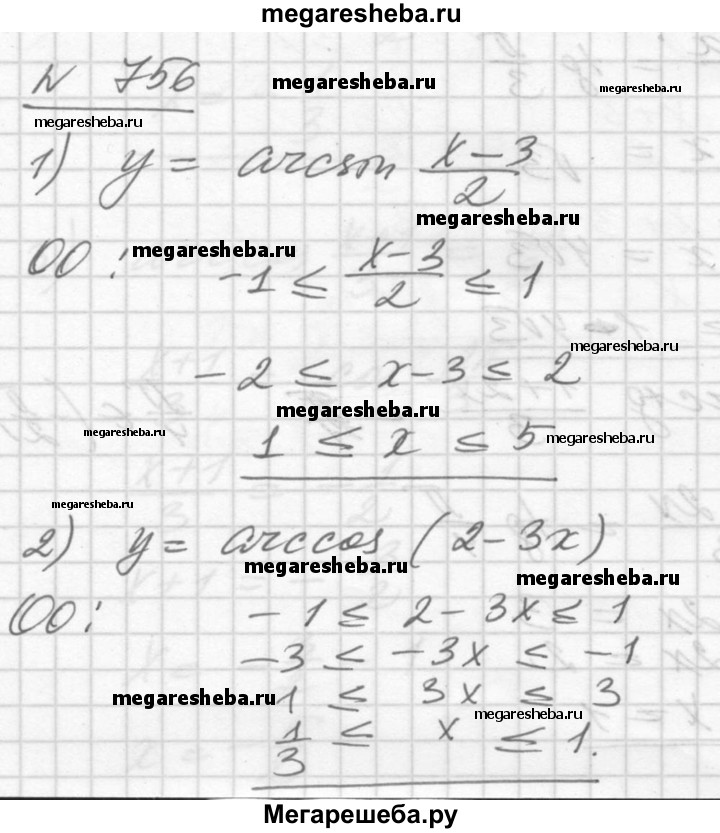 megaresheba.ru
N 756
megaresheba.ru
megaresheba.ru
megaresheba.ru
1) y = arcsin (x-3)/2
megaresheba.ru
ОО: -1 ≤ (x-3)/2 ≤ 1
megaresheba.ru
megaresheba.ru
-2 ≤ x-3 ≤ 2
megaresheba.ru
megaresheba.ru
1 ≤ x ≤ 5
megaresheba.ru
megaresheba.ru
2) y = arccos (2-3x)
megaresheba.ru
megaresheba.ru
ОО: -1 ≤ 2-3x ≤ 1
-3 ≤ -3x ≤ -1
megaresheba.ru
1 ≤ 3x ≤ 3
megaresheba.ru
1/3 ≤ x ≤ 1.
Мегарешеба.ру